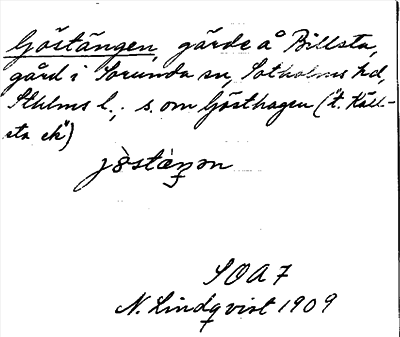 Göstängen, gärde å Billsta,
gård i Sorunda sn, Sotholms hd,
Sthlms l.; s. om Gösthagen ("t. Käll-
sta ek")
jö̀stæ̀ŋən
SOA 7
N. Lindqvist 1909